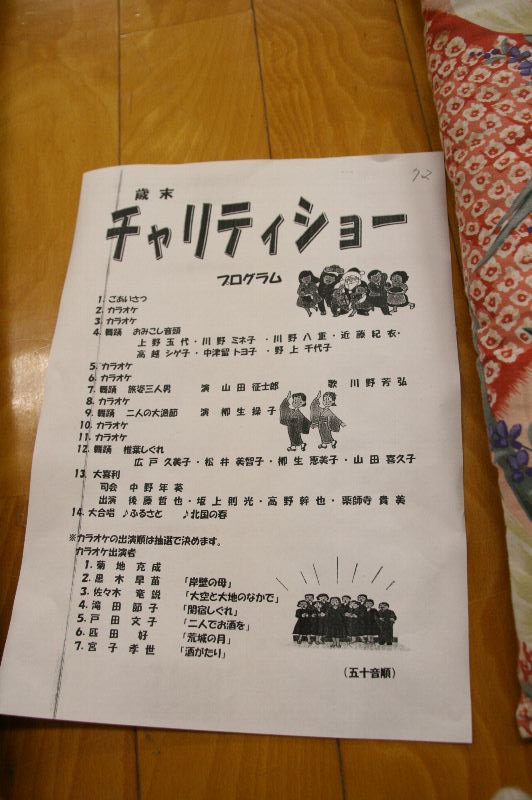 歳末
チャリティショー
プログラム
1. ごあいさつ
2. カラオケ
3. カラオケ
4. 舞踊 おみこし音頭
上野玉代・川野ミネ子・川野八重・近藤紀衣・
高越シゲ子・中津留トヨ子・野上千代子
5. カラオケ
6. カラオケ
7. 舞踊 旅姿三人男 演 山田征士郎 歌 川野芳弘
8. カラオケ
9. 舞踊 二人の大漁節 演 柳生操子
10. カラオケ
11. カラオケ
12. 舞踊 椎葉しぐれ
広戸久美子・松井美智子・柳生恵美子・山田喜久子
13. 大喜利
司会 中野年英
出演 後藤哲也・坂上則光・高野幹也・薬師寺貴美
14. 大合唱 ♪ふるさと ♪北国の春
※カラオケの出演順は抽選で決めます。
カラオケ出演者
1. 菊地克成
2. 黒木早苗 「岸壁の母」
3. 佐々木竜説 「大空と大地のなかで」
4. 滝田節子 「関宿しぐれ」
5. 戸田文子 「二人でお酒を」
6. 匹田好 「荒城の月」
7. 宮子孝世 「酒がたり」
(五十音順)